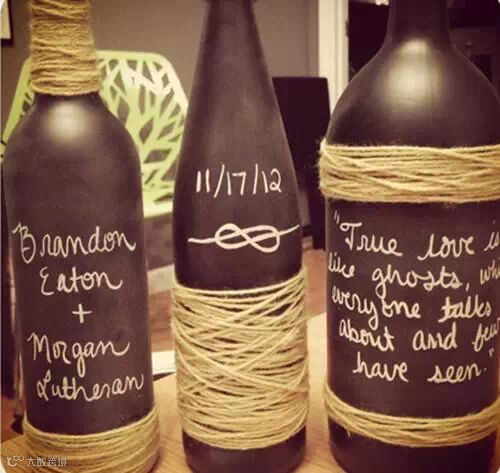 Brandon
Eaton
+
Morgan
Lutheran
11/17/12
"True love is
like ghosts, wh
everyone talks
about and few
have seen."
大数跨境